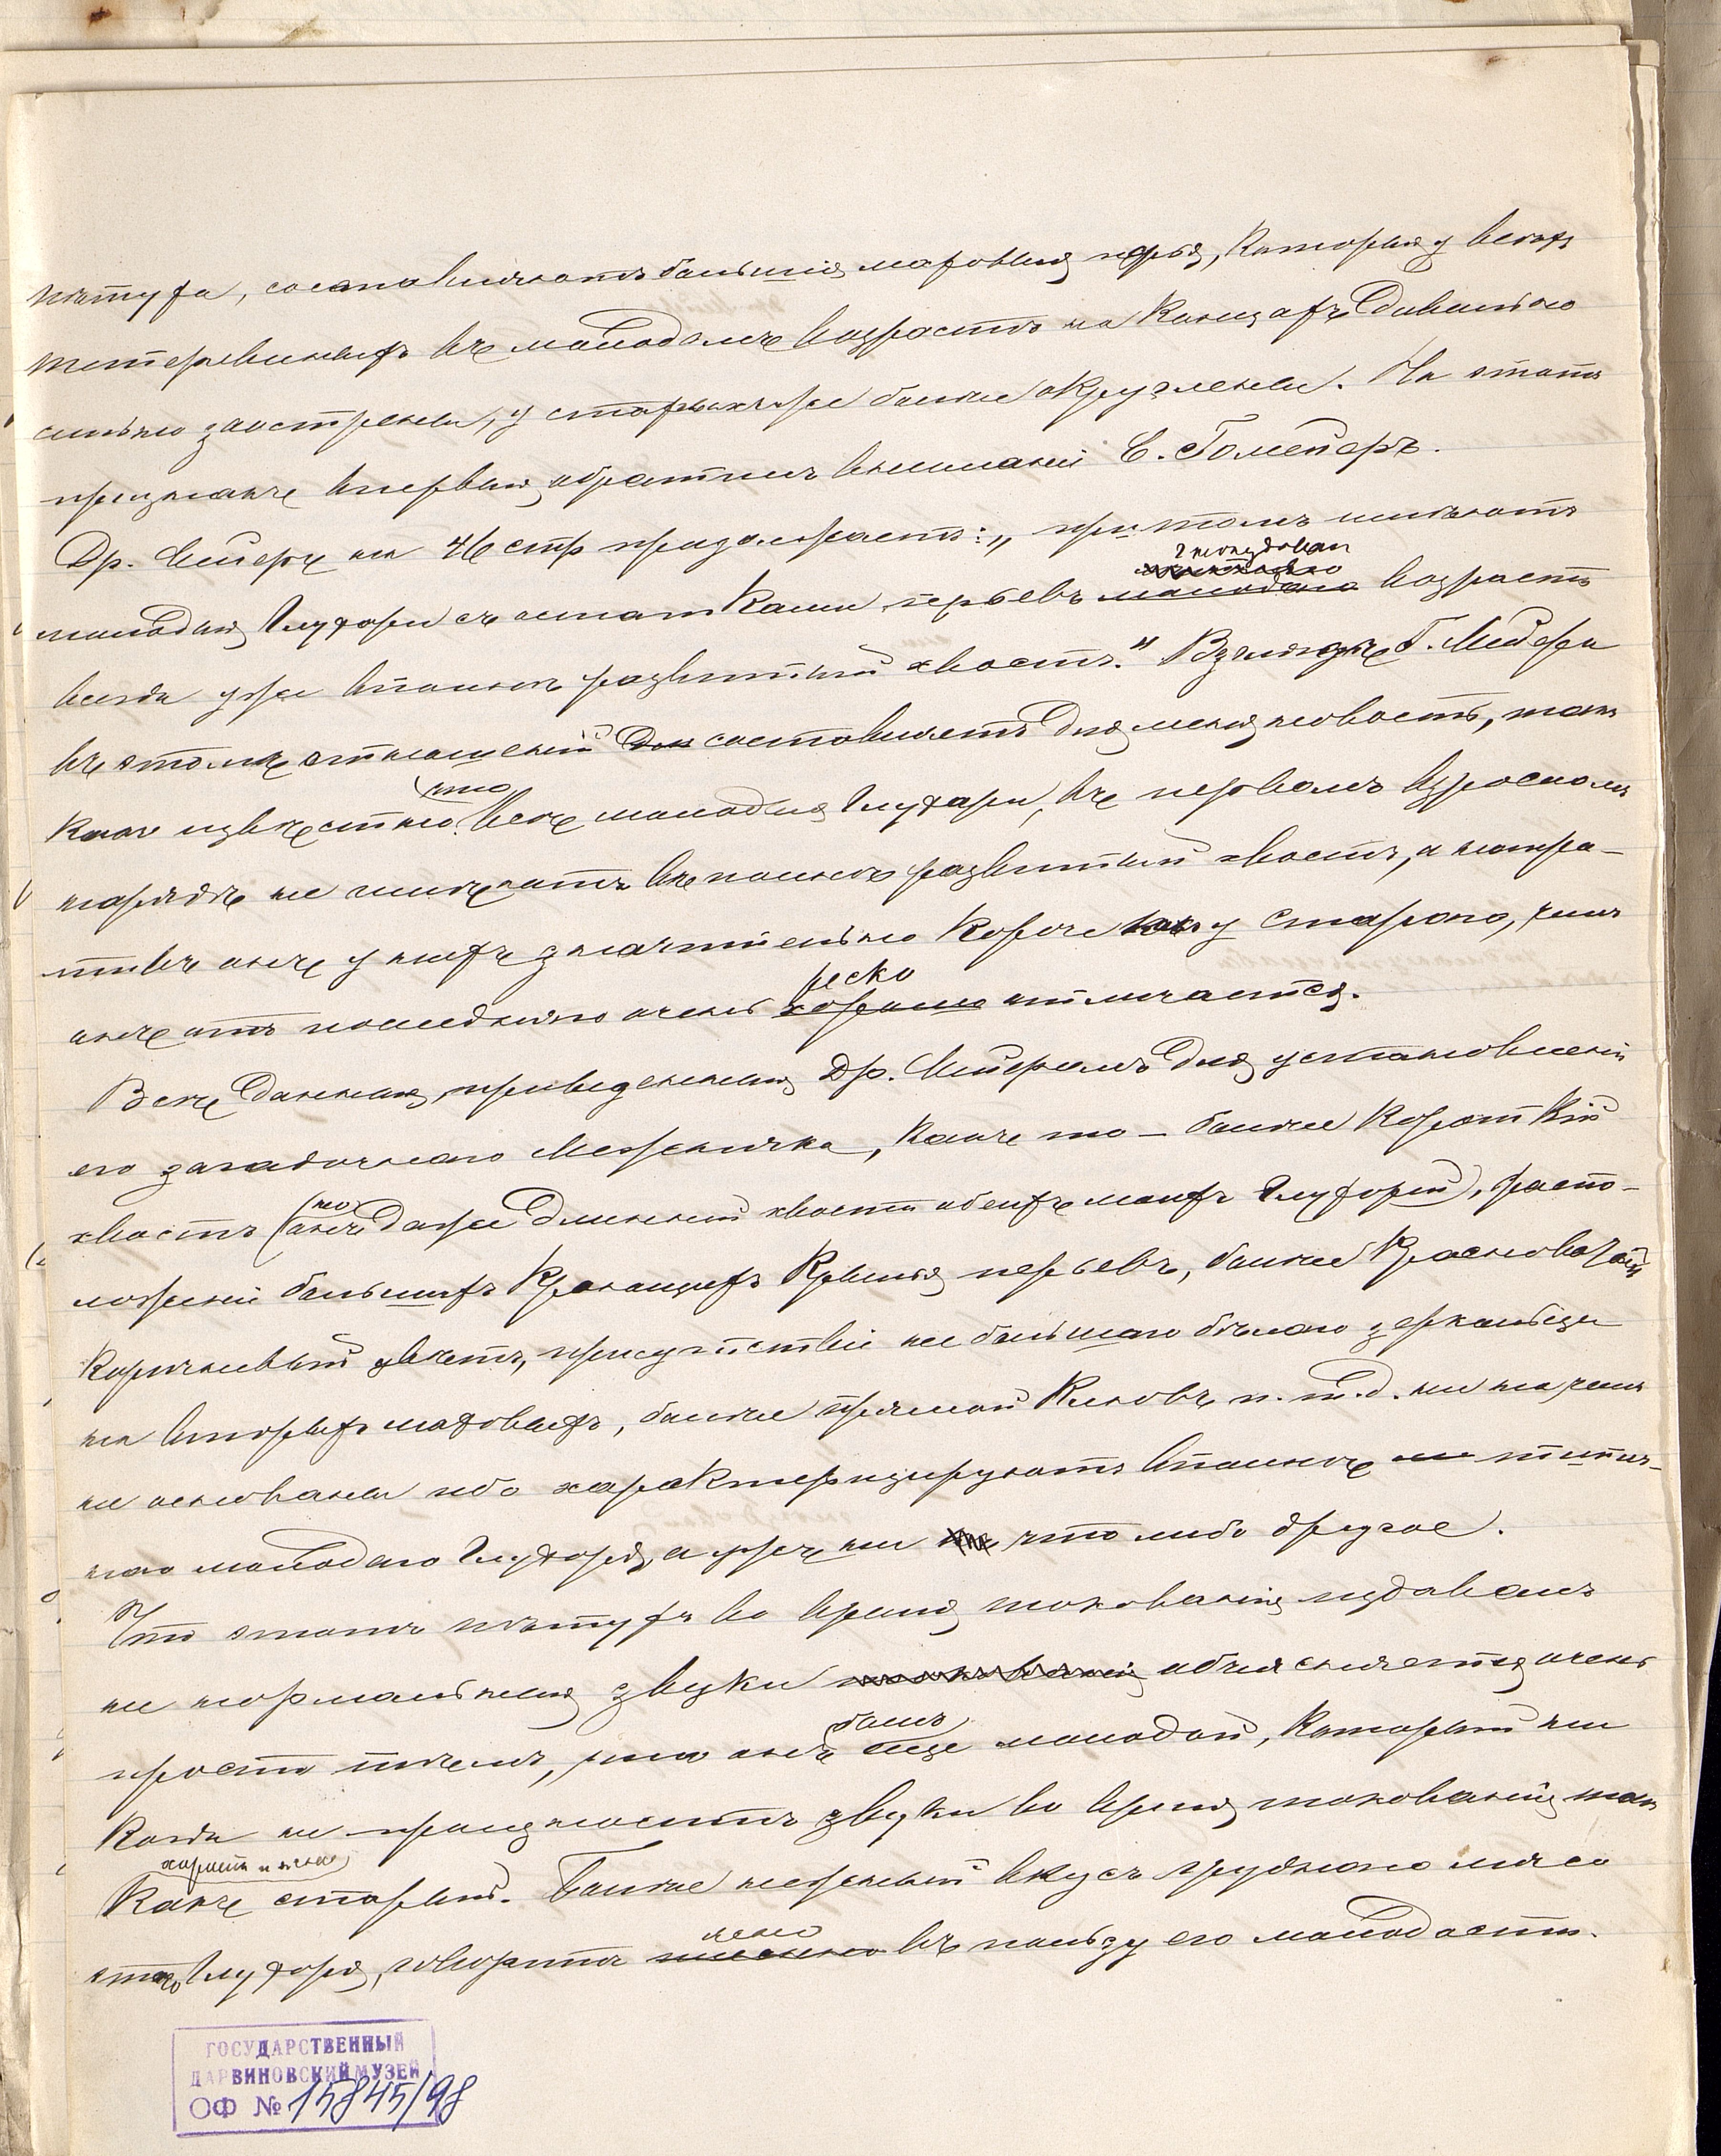 пѣтуха, составляютъ большія маховыя перья, которыя у всѣхъ
тетеревиныхъ въ молодомъ возрастѣ на концахъ довольно
сильно заострены, у старыхъ же болѣе округлены. На этотъ
признакъ впервыя обратилъ вниманіе Е. Гомейеръ.
Др. Мейеръ на 46 стр продолжаетъ: „притомъ имѣютъ
молодыя глухари съ остатками перьевъ возраста
всегда уже вполнѣ развитый хвостъ." Взглядъ Г. Мейера
въ этомъ отношеніи составляетъ для меня новость, такъ
какъ извѣстно, что всѣ молодыя глухари, въ первомъ взросломъ
нарядѣ не имѣютъ вполнѣ развитый хвостъ, а напро-
тивъ онъ у нихъ значительно короче у стараго, чѣмъ
онъ отъ послѣдняго очень хорошо рѣско отличается.
Всѣ данныя, приведенныя Др. Мейеромъ для установленія
его загадочнаго Межняка, какъ то – болѣе короткій
хвостъ (но онъ даже длиннѣй хвоста обеихъ моихъ глухарей), распо-
ложеніе большихъ кроющихъ крылья перьевъ, болѣе красноватый
коричневый цвѣтъ, присутствіе не большаго бѣлаго зеркальца
на вторыхъ маховыхъ, болѣе прямой клювъ и. т. д. ни на чемъ
не основаны ибо характеризируютъ вполнѣ типич-
наго молодаго глухаря, а уже ни что либо другое.
Что этотъ пѣтухъ во время токованія издавалъ
не нормальныя звуки объясняется очень
просто тѣмъ, что онъ былъ еще молодой, который ни
когда не произноситъ звуки во время токованія такъ
хорошо и ясно
какъ старый. Болѣе нежный вкусъ груднаго мяса
этаго глухаря, говоритъ ясно въ пользу его молодости.
ГОСУДАРСТВЕННЫЙ
ДАРВИНОВСКИЙ МУЗЕЙ
ОФ № 15845/98